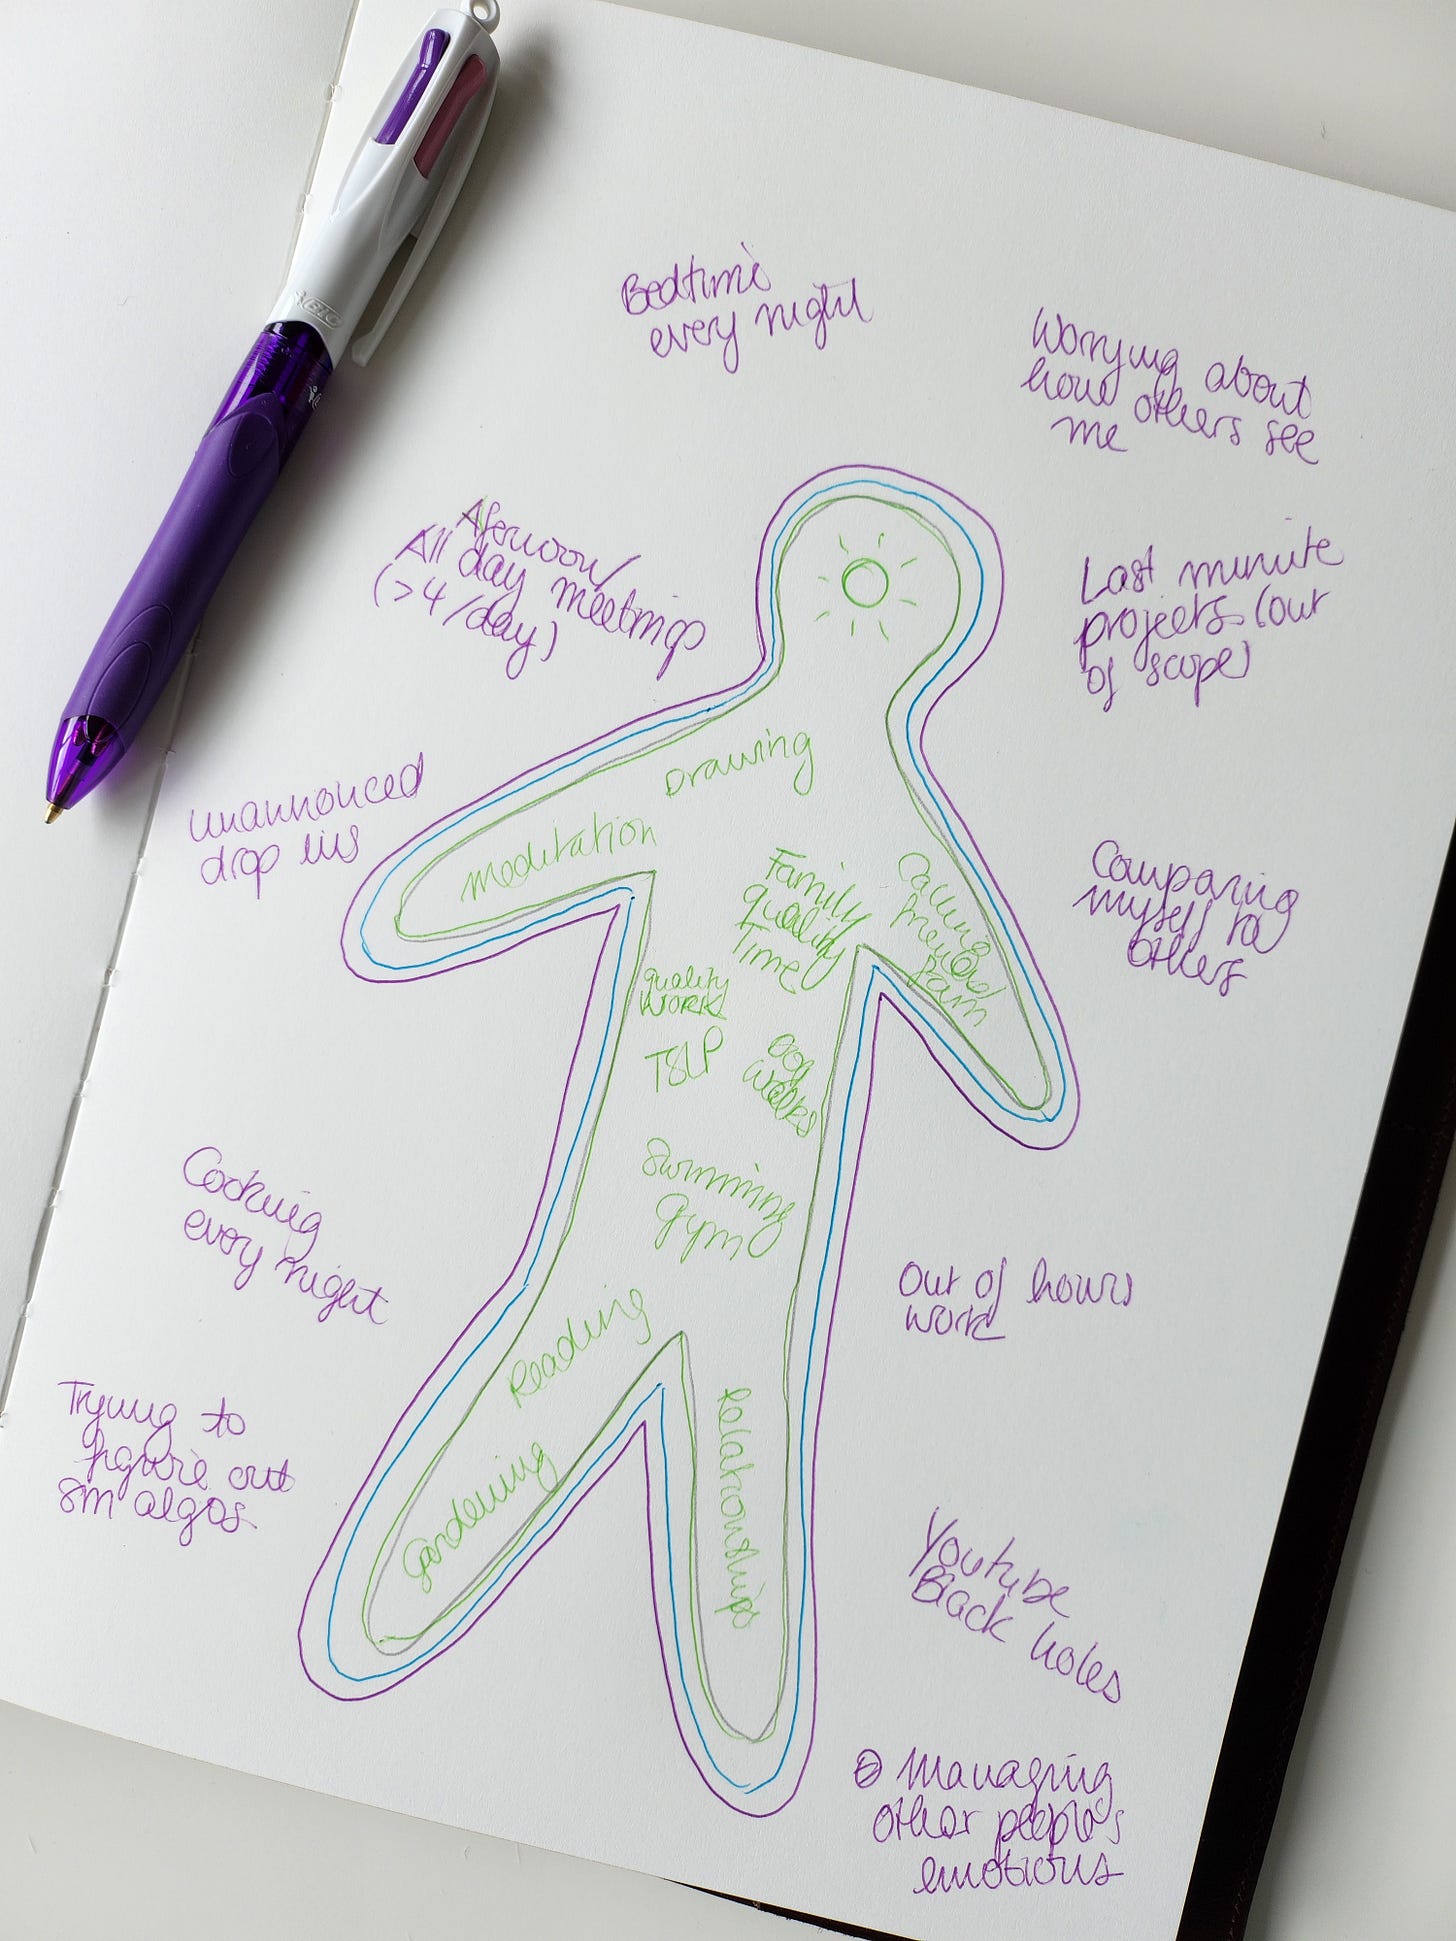 BIC
Bedtime
every night
Worrying about
how others see
me
Afernoon/
All day meetings
(>4/day)
Last minute
projects (out
of scope)
unannouced
drop ins
Comparing
myself to
others
Drawing
meditation
Family
quality
Time
Calling
friends
fam
quality
work
TSLP
dog
walks
Swimming
Gym
Cooking
every night
Out of hours
work
Reading
Gardening
Relationships
Trying to
figure out
SM algos
Youtube
Black holes
Managing
other people's
emotions